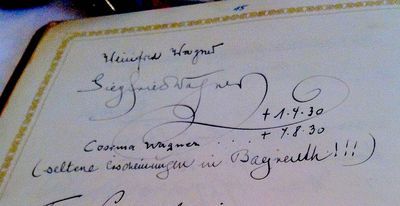 45
Winifred Wagner
Siegfried Wagner
+ 1·4·30
Cosima Wagner . . . . + 4.8.30
(seltene Erscheinungen in Bayreuth!!!)